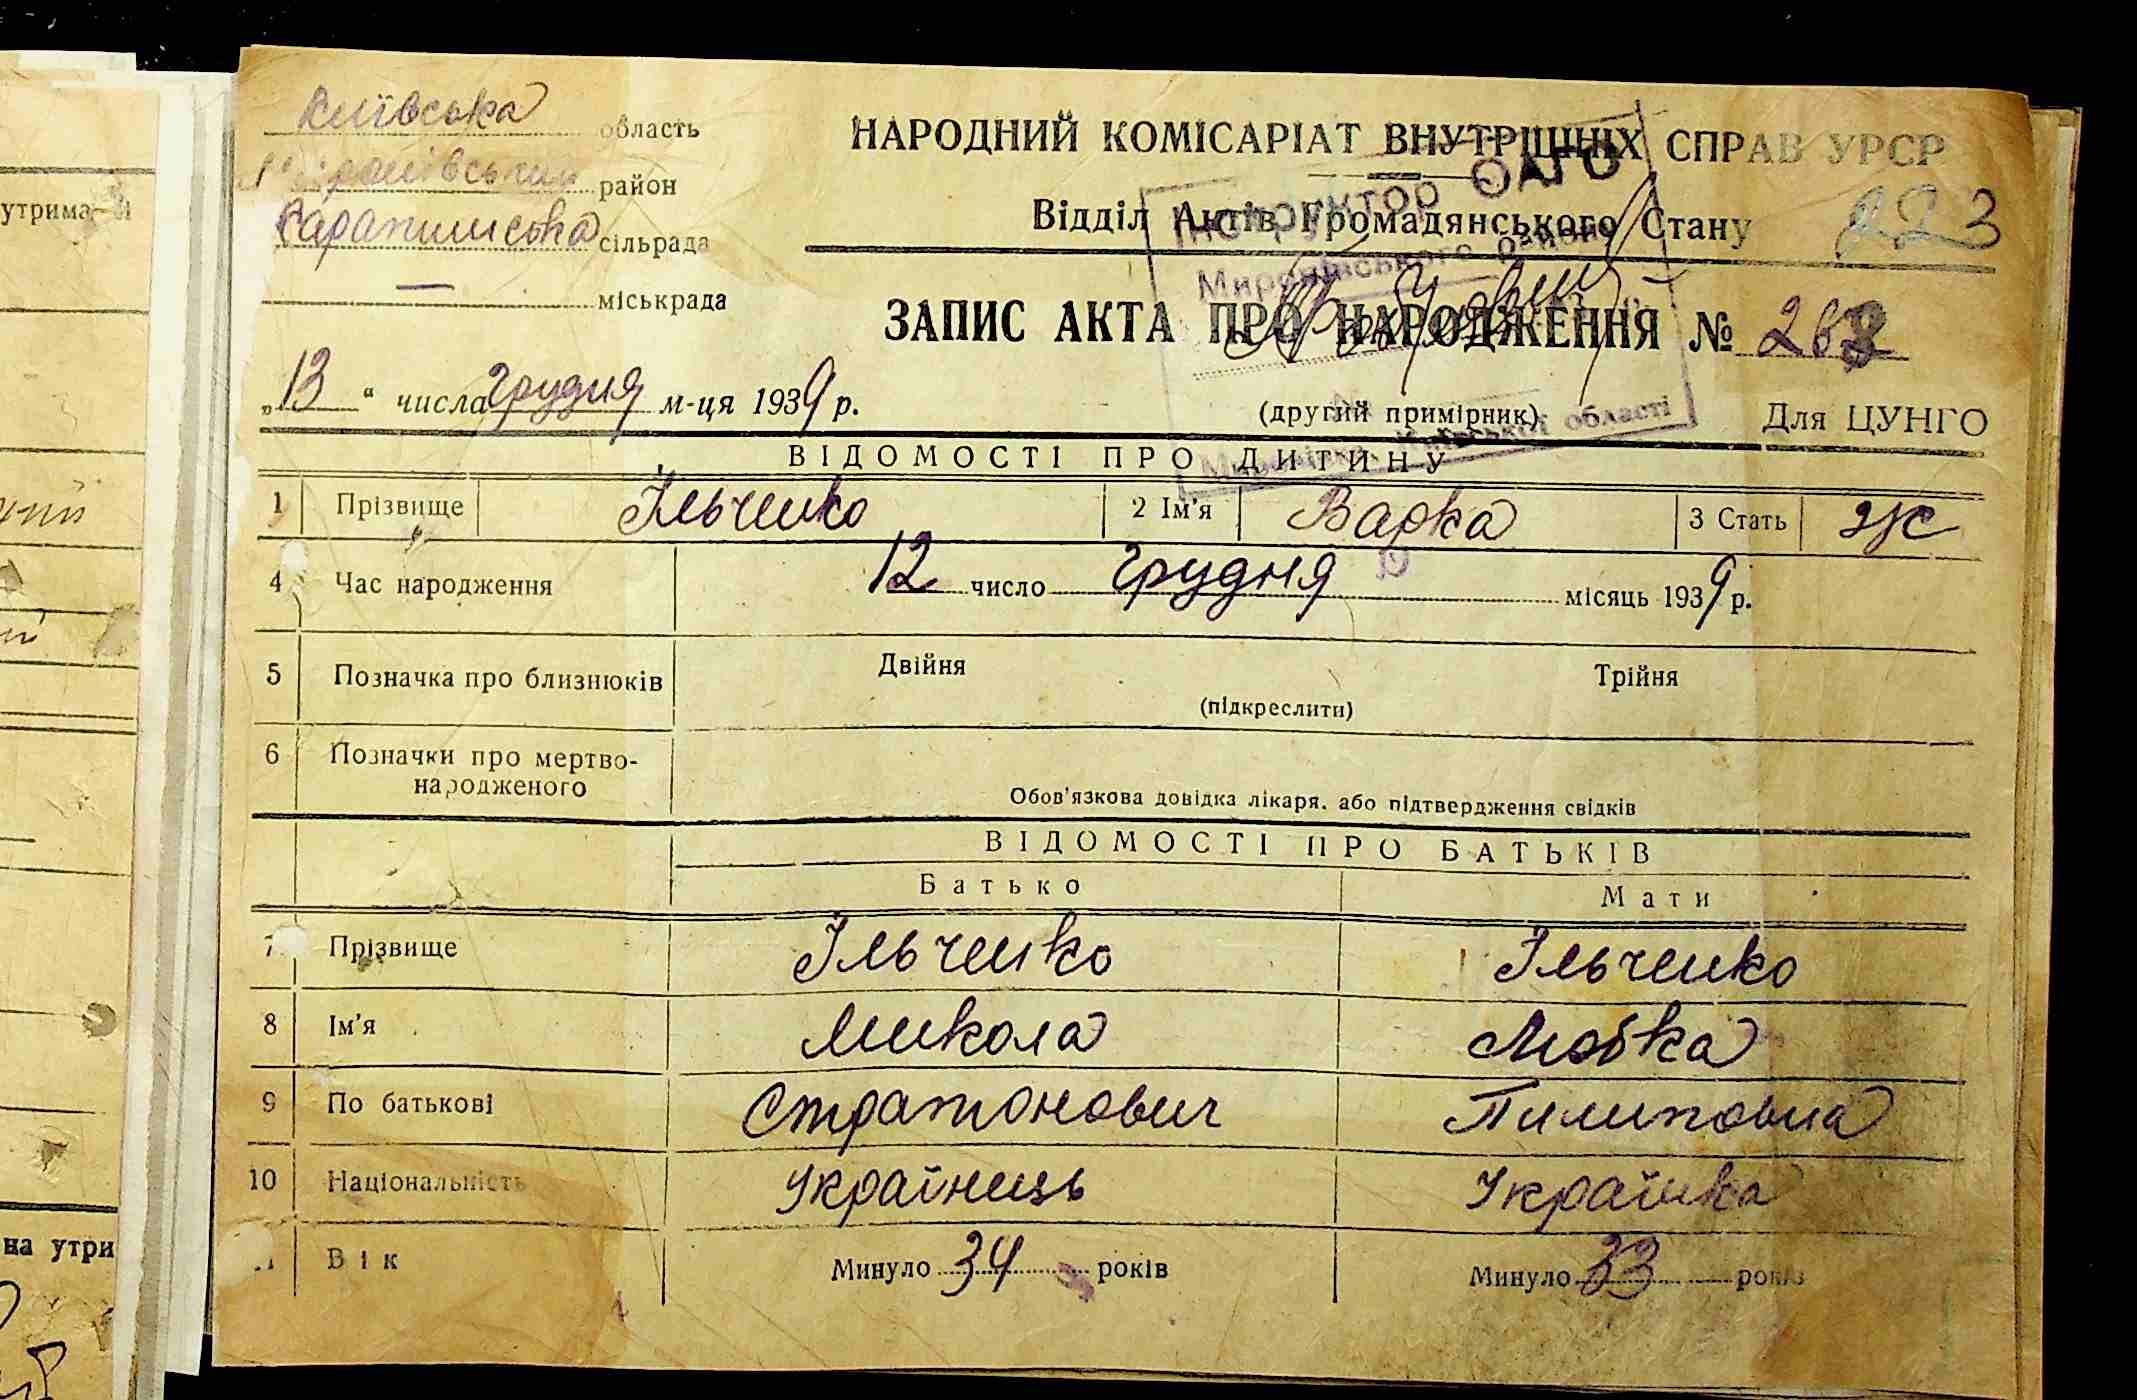 Київська область
Миронівський район
Карапишська сільрада
— міськрада
НАРОДНИЙ КОМІСАРІАТ ВНУТРІШНІХ СПРАВ УРСР
Відділ Актів Громадянського Стану 223
Інспектор ОАГС
Миронівського району
ЗАПИС АКТА ПРО НАРОДЖЕННЯ №
„13“ числа грудня м-ця 1939 р.
(другий примірник)
Для ЦУНГО
Київської області
ВІДОМОСТІ ПРО ДИТИНУ
1 Прізвище Ільченко 2 Ім'я Варка 3 Стать ж
4 Час народження 12 число грудня місяць 1939 р.
5 Позначка про близнюків Двійня Трійня
(підкреслити)
6 Позначки про мертво-
народженого
Обов'язкова довідка лікаря. або підтвердження свідків
ВІДОМОСТІ ПРО БАТЬКІВ
Батько Мати
7 Прізвище Ільченко Ільченко
8 Ім'я Микола Любка
9 По батькові Стратонович Пилиповна
10 Національність Українець Українка
11 Вік Минуло 34 років Минуло 33 років
утрима
на утри